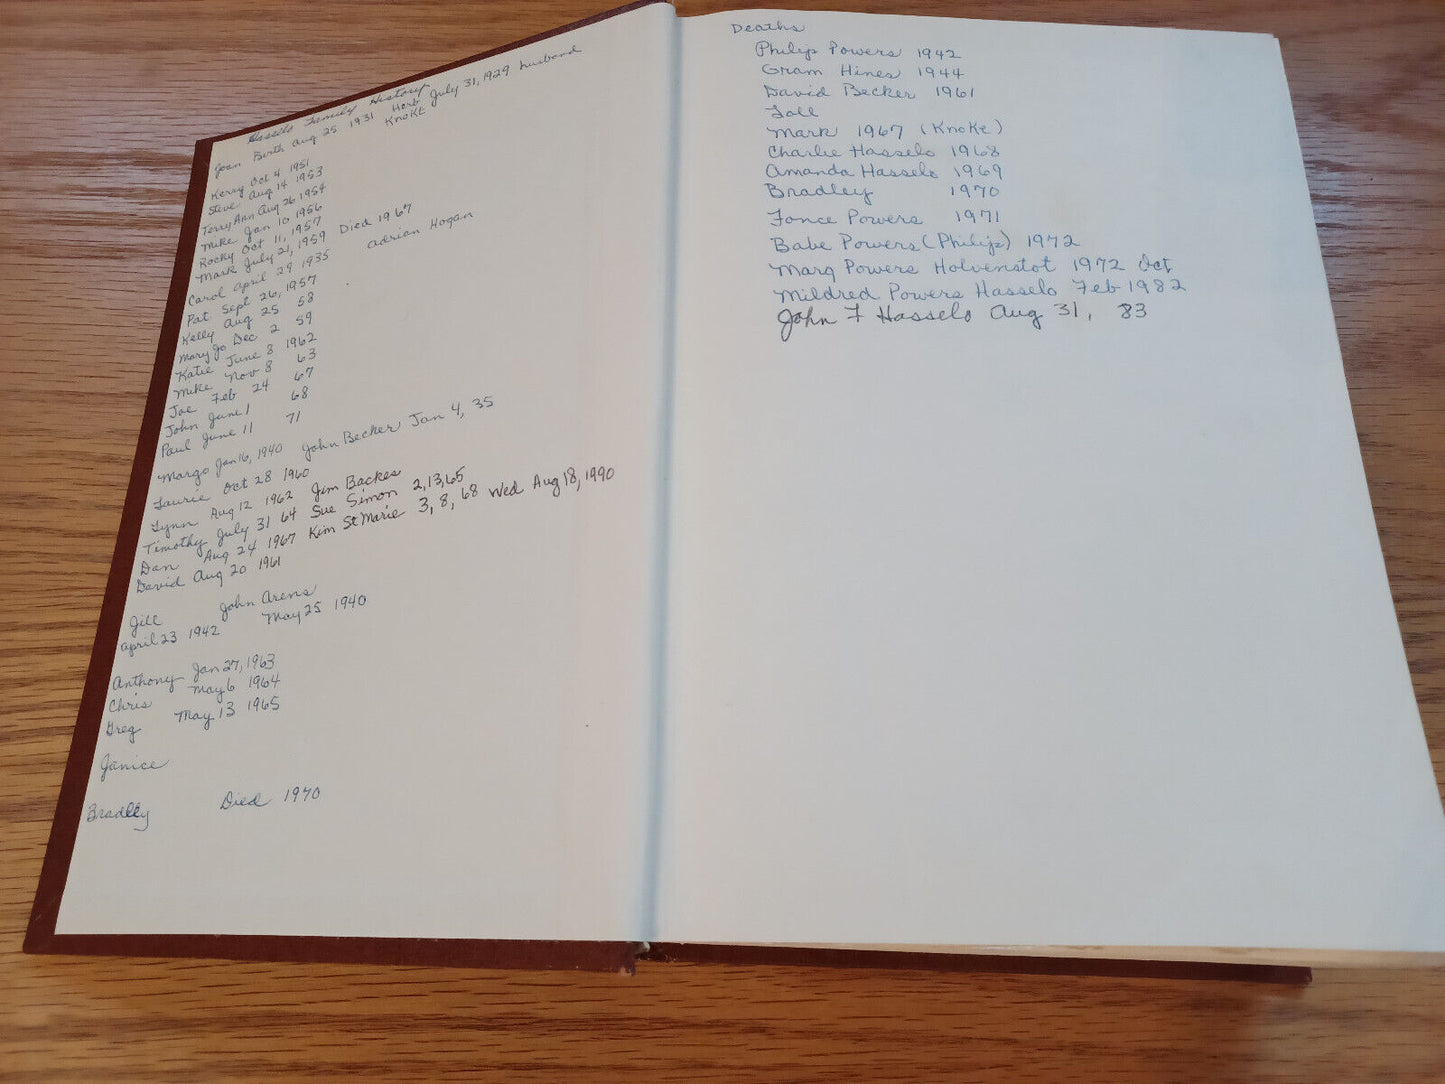 Hasselo Family History
Joan Birth Aug 25 1931 Herb July 31, 1929 husband
Knoke
Kerry Oct 4 1951
Steve Aug 14 1953
Terry Ann Aug 26 1954
Mike Jan 10 1956
Rocky Oct 11, 1957
Mark July 21, 1959 Died 1967
Carol April 29 1935 Adrian Hogan
Pat Sept 26, 1957
Kelly Aug 25 58
Mary Jo Dec 2 59
Katie June 8 1962
Mike Nov 8 63
Joe Feb 24 67
John June 1 68
Paul June 11 71
Margo Jan 16, 1940 John Becker Jan 4, 35
Laurie Oct 28 1960
Lynn Aug 12 1962 Jim Backes
Timothy July 31 64 Sue Simon 2,13,65
Dan Aug 24 1967 Kim St Marie 3, 8, 68 Wed Aug 18, 1990
David Aug 20 1961
Jill John Arens
April 23 1942 May 25 1940
Anthony Jan 27, 1963
Chris May 6 1964
Greg May 13 1965
Janice
Bradley Died 1970
Deaths
Philip Powers 1942
Gram Hines 1944
David Becker 1961
Mark 1967 (Knoke)
Charlie Hasselo 1968
Amanda Hasselo 1969
Bradley 1970
Fonce Powers 1971
Babe Powers (Philip) 1972
Marq Powers Holvenstot 1972 Oct
Mildred Powers Hasselo Feb 1982
John F Hasselo Aug 31, 83